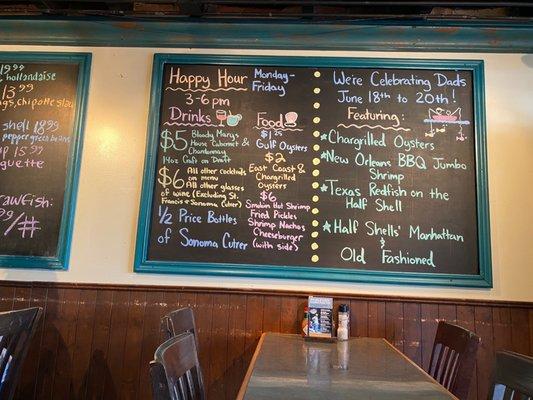 hollandaise
13.99
gs, chipotle slaw
shell 18.99
pepper green beans
15.99
guette
rawfish:
.99/#
Happy Hour Monday-
Friday
3-6pm
Drinks
$5 Bloody Marys
House Cabernet &
Chardonnay
14oz Craft on Draft
$6 All other cocktails
on menu
All other glasses
of wine (Excluding St.
Francis & Sonoma Cutrer)
1/2 Price Bottles
of Sonoma Cutrer
Food
$1.25
Gulf Oysters
$2
East Coast &
Chargrilled
Oysters
$6
Smokin Hot Shrimp
Fried Pickles
Shrimp Nachos
Cheeseburger
(with side)
We're Celebrating Dads
June 18th to 20th!
Featuring:
Chargrilled Oysters
New Orleans BBQ Jumbo
Shrimp
Texas Redfish on the
Half Shell
Half Shells' Manhattan
&
Old Fashioned